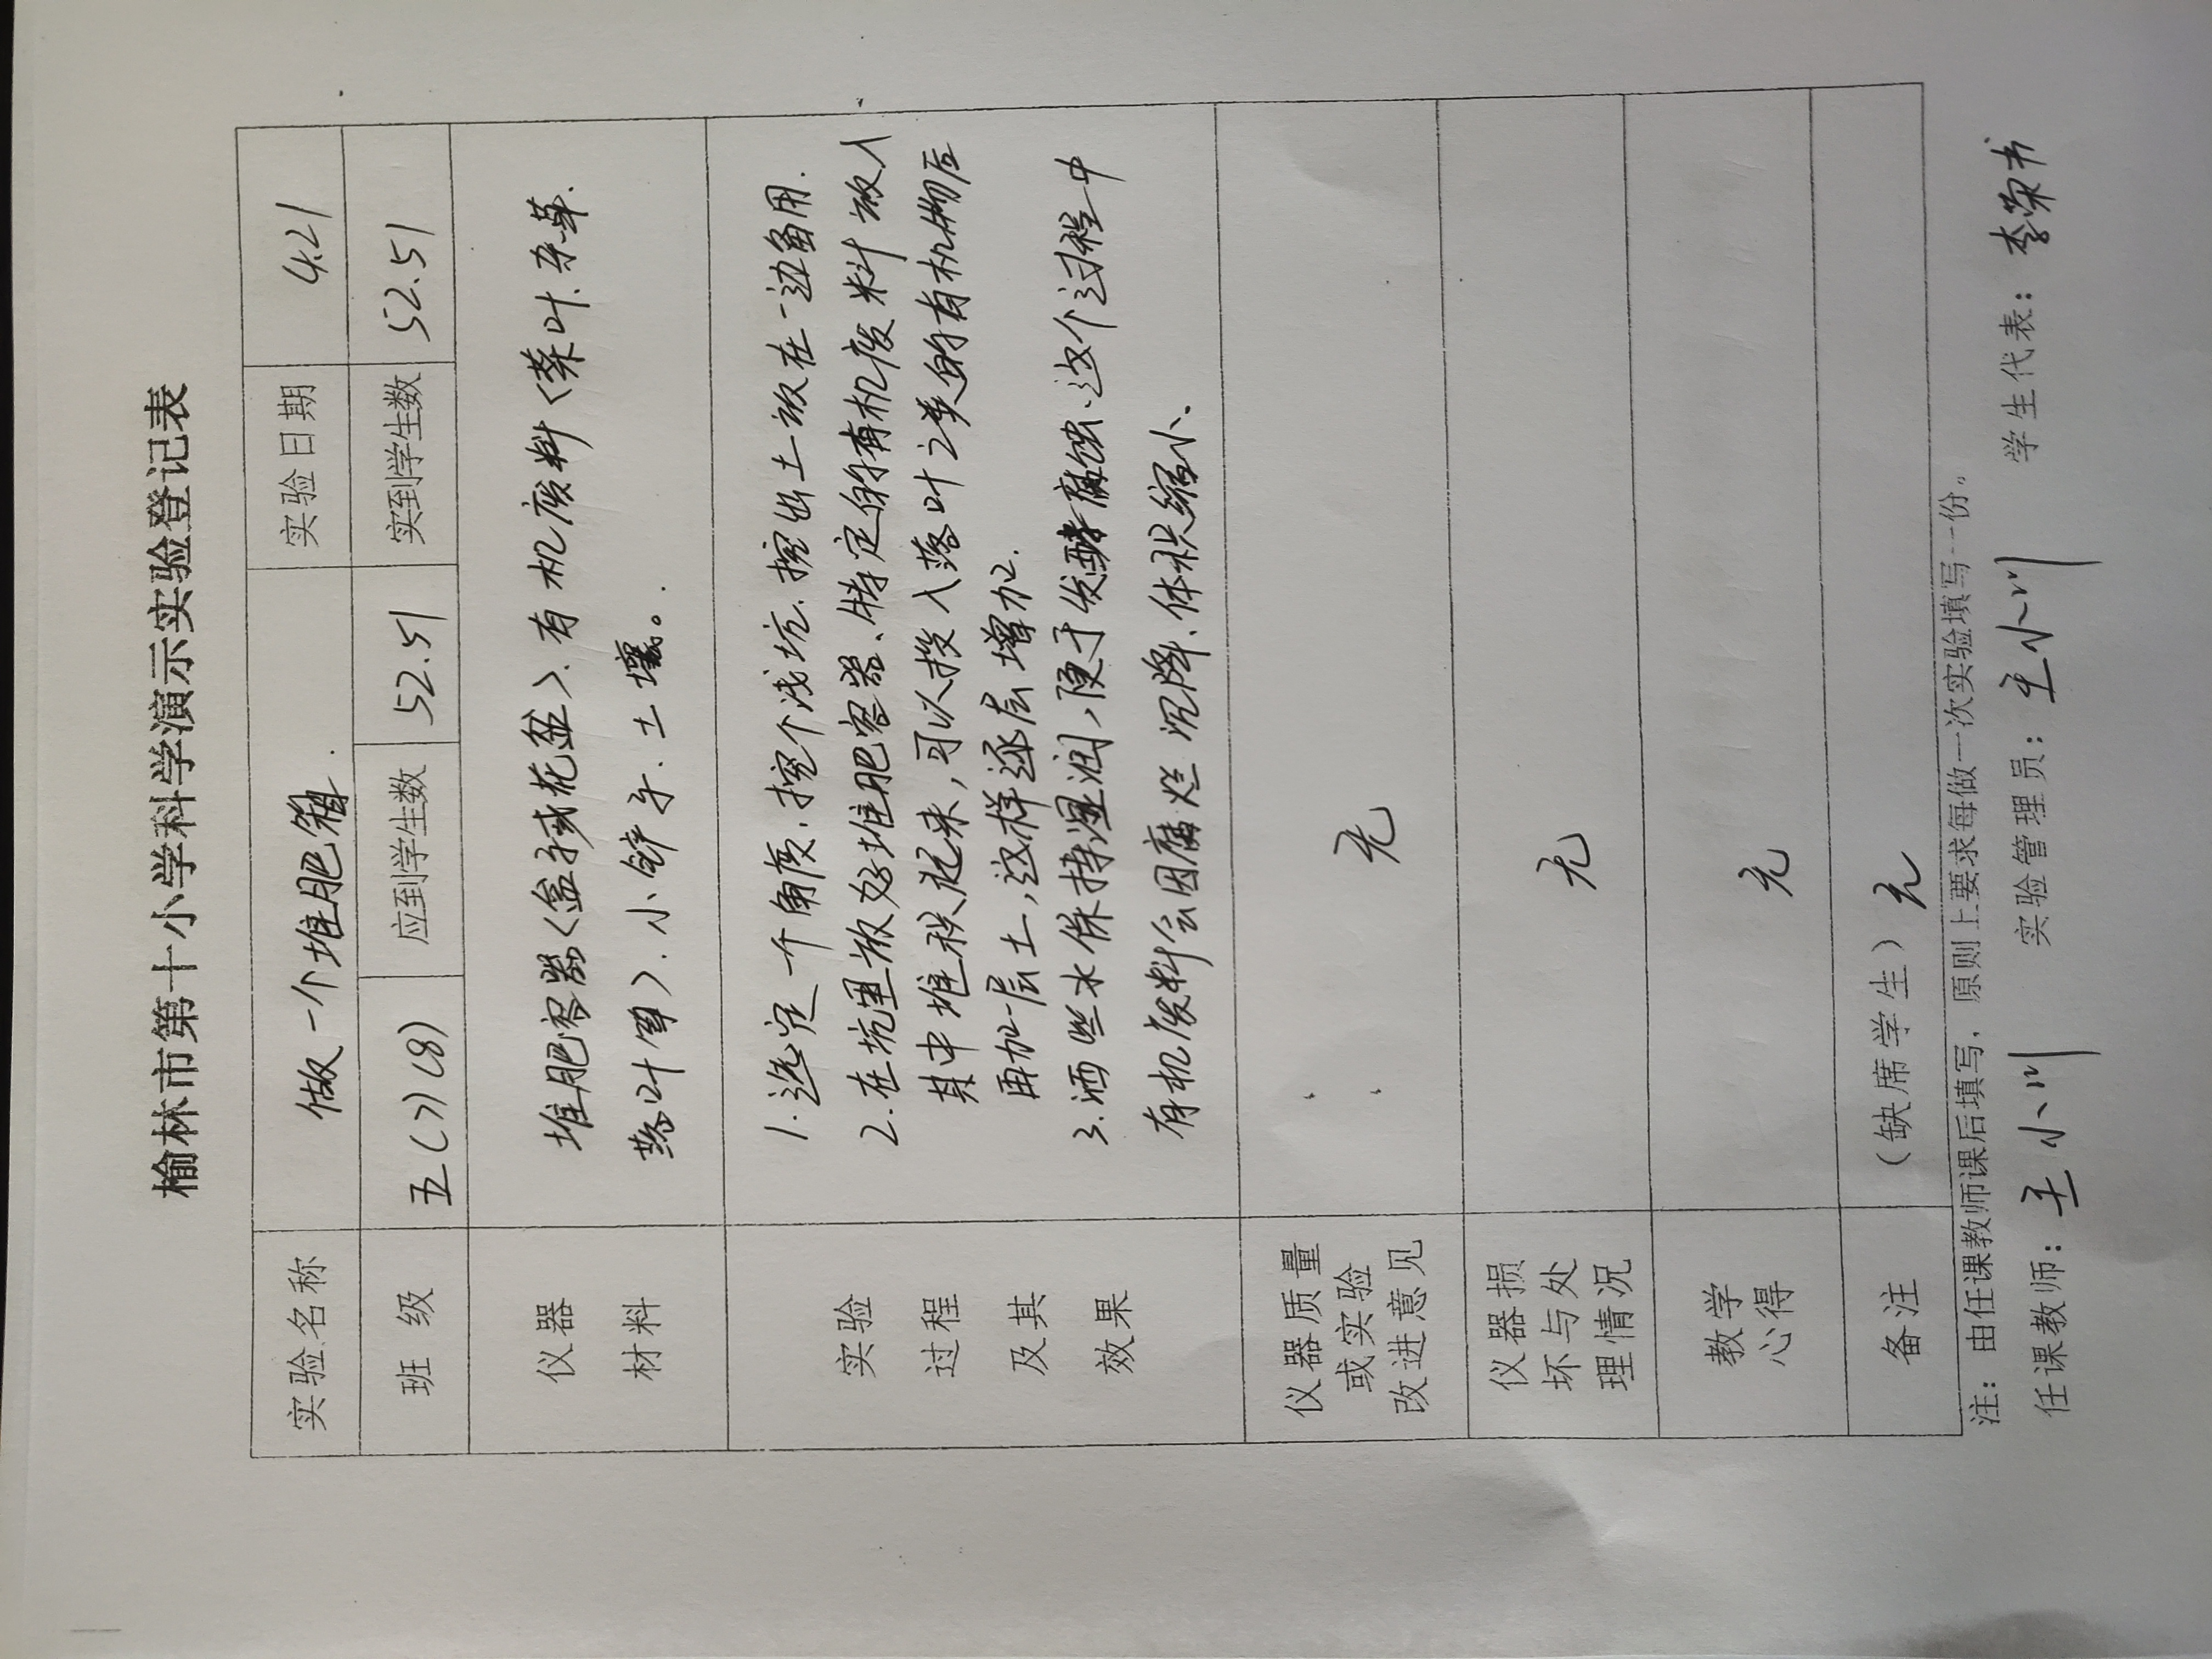 榆林市第十小学科学演示实验登记表
实验名称 做一个堆肥箱. 实验日期 4.21
班级 五(7)(8) 应到学生数 52.51 实到学生数 52.51
仪器
材料
堆肥容器<盒子或花盆>、有机废料<菜叶.杂草.
落叶等>、小铲子、土壤。
实验
过程
及其
效果
1.选定一个角度、挖个浅坑、挖出土放在一边备用.
2.在坑里放好堆肥容器、特定的有机废料放入
其中堆积起来,可以投入落叶之类的有机物后
再加一层土,这样逐层增加.
3.洒些水保持湿润,便于发酵腐蚀.这个过程中
有机废料会因腐烂沉降、体积缩小.
仪器质量
或实验
改进意见
无
仪器损
坏与处
理情况
无
教学
心得
无
备注 (缺席学生) 无
注:由任课教师课后填写,原则上要求每做一次实验填写一份。
任课教师:王小川 实验管理员:王小川 学生代表:李荣书